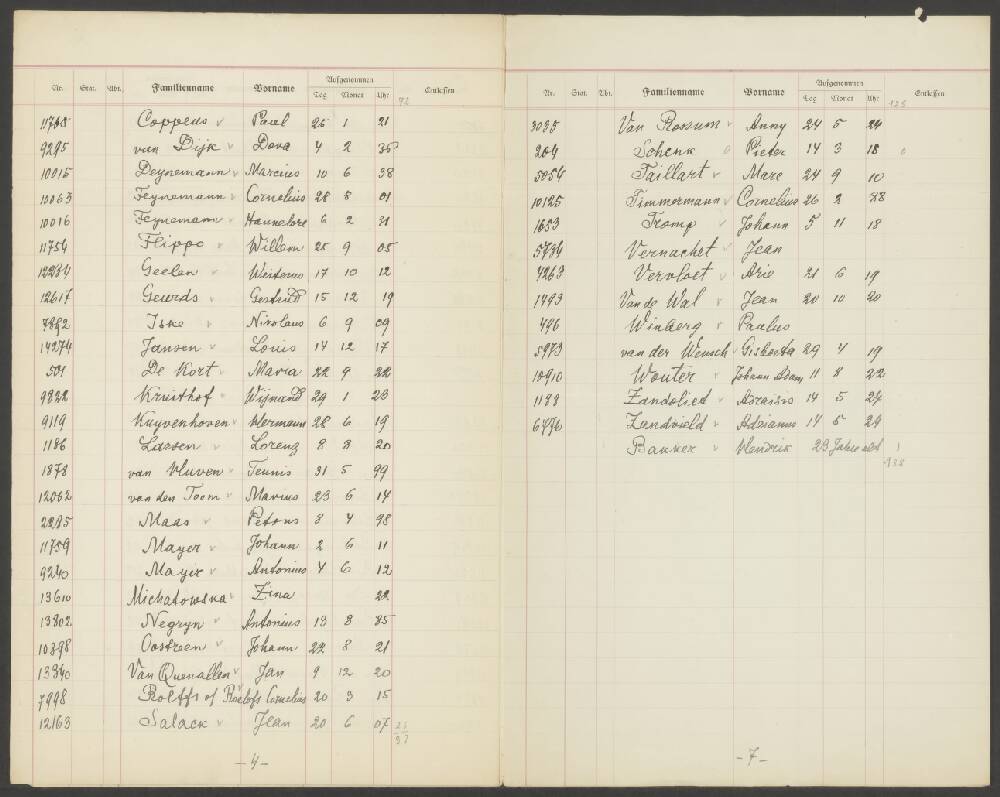 Nr. Stat. Abt. Familienname Vorname Aufgenommen Tag Monat Uhr Entlassen
72
Coppens v Paul 25 1 21
9295 van Dijk v Dora 4 2 35
10015 Deynemann v Marcius 10 6 38
13063 Feynemann v Cornelius 28 5 01
10016 Feynemann v Hannelore 6 2 31
11754 Flippo v Willem 25 9 05
Geelen v 17 10 12
12617 Geurds v 15 12 19
7892 Iske v Nikolaus 6 9 09
14274 Jansen v Louis 14 12 17
501 De Kort v Maria 22 9 22
9822 Kruithof v Wijnand 29 1 23
9119 Kuyvenhoven v Hermann 28 6 19
1186 Larsen v Lorenz 8 8 20
1878 van Vluven v Teunis 31 5 99
12062 van den Toom v Marius 23 6 14
Maas v Petous 8 4 98
11759 Mayer v Johann 2 6 11
9240 Mayer v Antonius 4 6 12
13610 Michatowska v Zina 22
13802 Negryn v Antonius 13 8 85
10398 Oostreen v Johann 22 8 21
13340 Van Quenallen v Jan 9 12 20
7998 Roltffs of Roelofs Cornelius 20 3 15
12163 Salack v Jean 20 6 07
23
97
- 4 -
Nr. Stat. Abt. Familienname Vorname Aufgenommen Tag Monat Uhr Entlassen
125
3035 Van Rossum v Anny 24 5 24
204 Schenk o Pieter 14 3 18 o
5054 Taillart v Marc 24 9 10
10125 Timmermann v Cornelius 26 2 88
1653 Tromp v Johann 5 11 18
5734 Vernachet v Jean
4263 Vervloet v Arie 21 6 19
1793 Van de Wal v Jean 20 10 20
496 Winberg v Paulus
5973 van der Wensch v Gisberta 29 4 19
10910 Wouter v Johann Adam 11 8 22
1133 Zandolied v 14 5 24
6776 Zandvield v Adrianus 14 5 24
Bakker v Hendrik 23 Jahre alt )
138
- 7 -